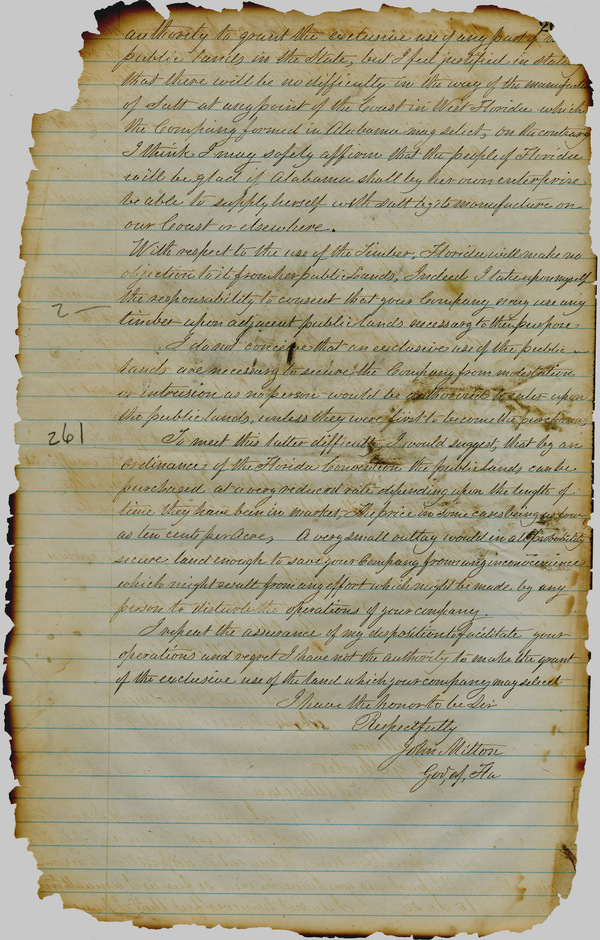 authority to grant the exclusive use of any part of
public Lands in the State, but I feel justified in
that there will be no difficulty in the way of the
of Salt at any point of the Coast in West Florida which
the Company formed in Alabama may select, on the contrary
I think I may safely affirm that the people of Florida
will be glad if Alabama shall by her own enterprise
be able to supply herself with salt by its manufacture on
our Coast or elsewhere.
With respect to the use of the Timber, Florida will make no
objection to it from her public Lands, Indeed I take upon myself
the responsability to consent that your Company may use any
timber upon adjacent public lands necessary to their purpose
2 —
I do not conceive that an exclusive use of the public
Lands are necessary to secure the Company from molestation
or intrusion as no person would be authorized to enter upon
the public lands, unless they were first to become the
261
To meet this latter difficulty I would suggest, that by an
Ordinance of the Florida Convention the public Lands can be
purchased at a very reduced rate depending upon the length of
time they have been in market, the price in some cases being as low
as ten cents per Acre, A very small outlay would in all probability
secure land enough to save your Company from any inconvenience
which might result from any effort which might be made by any
person to disturb the operations of your company.
I repeat the assurance of my disposition to facilitate your
operations and regret I have not the authority to make the grant
of the exclusive use of the land which your company may select
I have the honor to be Sir
Respectfully
John Milton
Gov, of, Fla